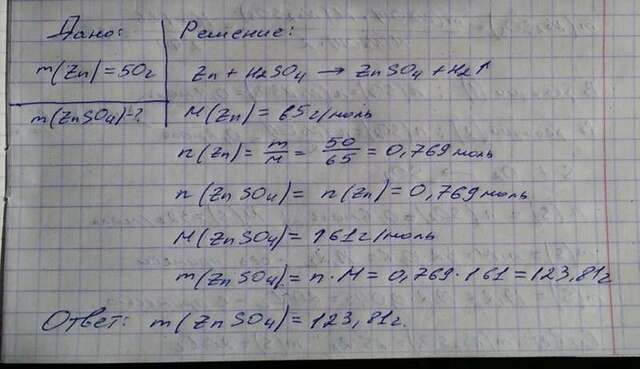 Дано:
Решение:
m(Zn)=50г
Zn + H2SO4 → ZnSO4 + H2↑
m(ZnSO4)-?
M(Zn) = 65г/моль
n(Zn) = m/M = 50/65 = 0,769 моль
n(ZnSO4) = n(Zn) = 0,769 моль
M(ZnSO4) = 161г/моль
m(ZnSO4) = n·M = 0,769·161 = 123,81г
Ответ: m(ZnSO4) = 123,81г.